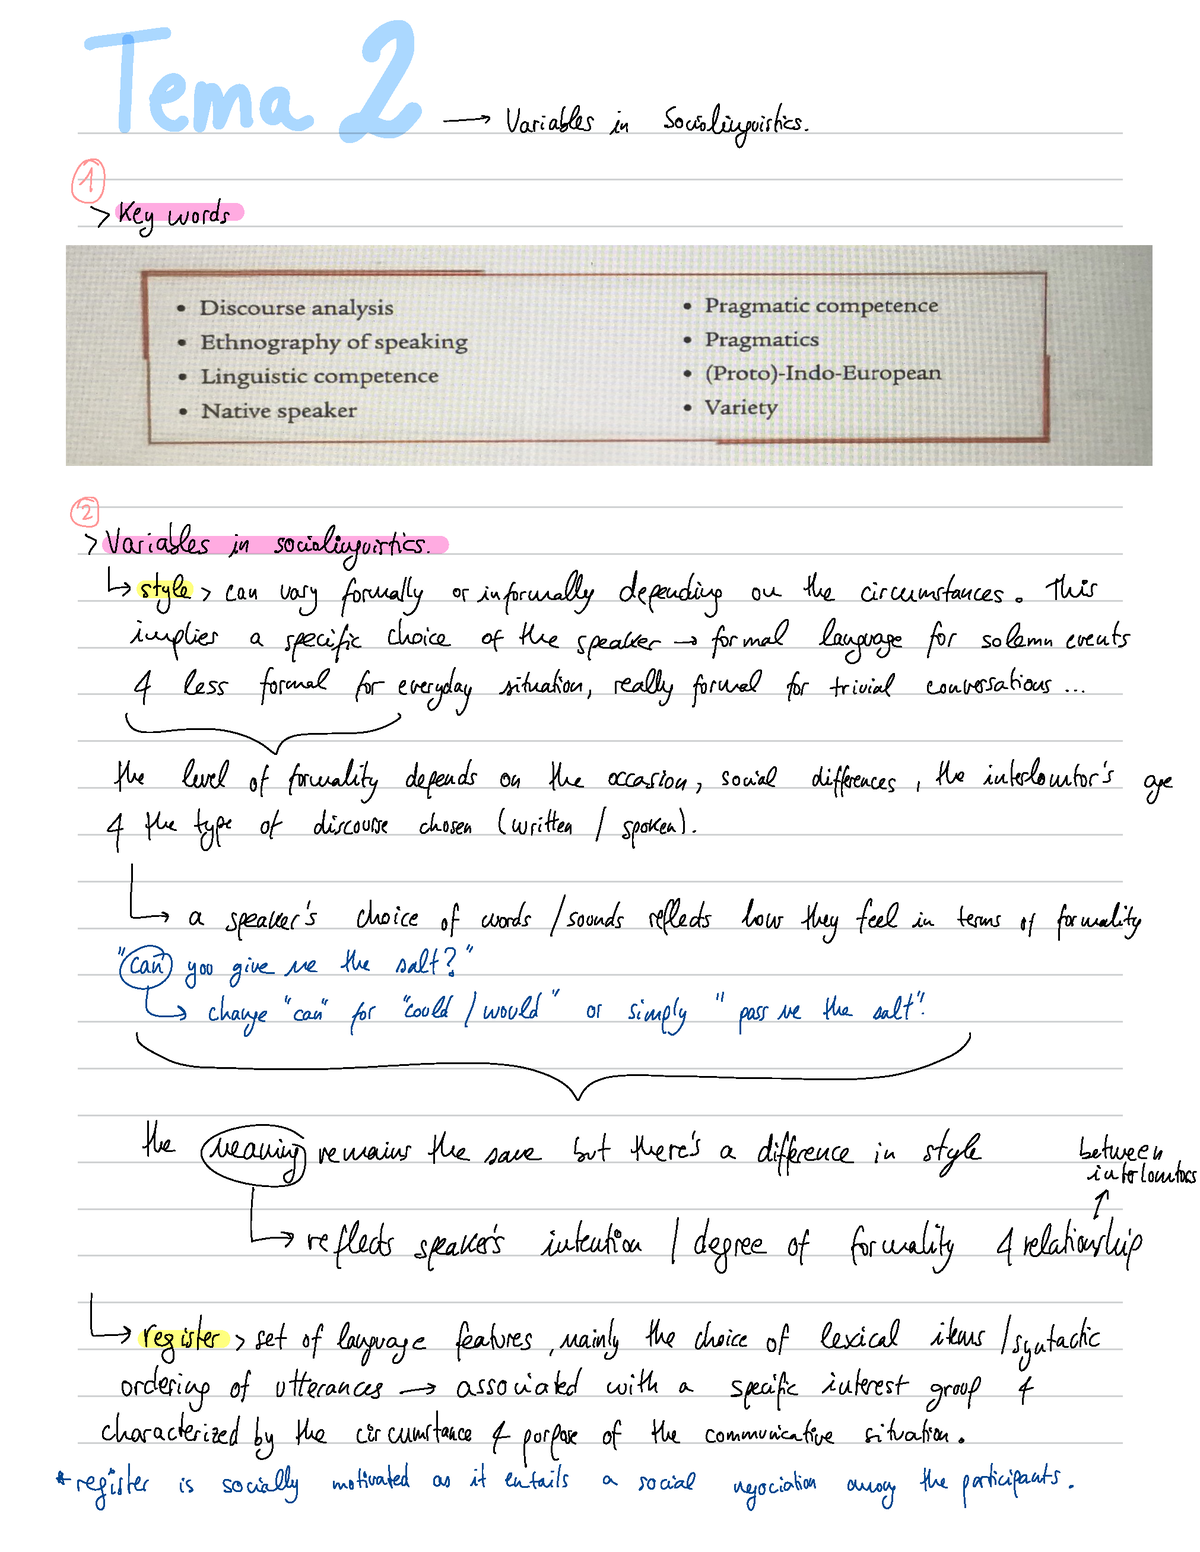 Tema 2 → Variables in Sociolinguistics.
1
> Key words
• Discourse analysis
• Ethnography of speaking
• Linguistic competence
• Native speaker
• Pragmatic competence
• Pragmatics
• (Proto)-Indo-European
• Variety
2
> Variables in sociolinguistics.
↳ style > can vary formally or informally depending on the circumstances. This
implies a specific choice of the speaker → formal language for solemn events
& less formal for everyday situation, really formal for trivial conversations...
the level of formality depends on the occasion, social differences, the interlocutor's age
& the type of discourse chosen (written / spoken).
↳ a speaker's choice of words / sounds reflects how they feel in terms of formality
"can you give me the salt?"
↳ change "can" for "could / would" or simply "pass me the salt".
the meaning remains the same but there's a difference in style
between
interlocutors
↑
↳ reflects speaker's intention / degree of formality & relationship
↳ register > set of language features, mainly the choice of lexical items / syntactic
ordering of utterances → associated with a specific interest group &
characterized by the circumstance & porpose of the communicative situation.
* register is socially motivated as it entails a social negociation among the participants.